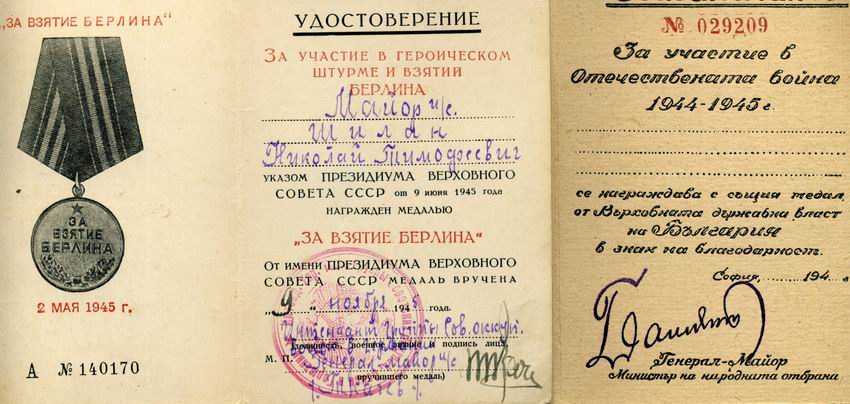 „ЗА ВЗЯТИЕ БЕРЛИНА"
ЗА
ВЗЯТИЕ
БЕРЛИНА
2 МАЯ 1945 г.
А № 140170
УДОСТОВЕРЕНИЕ
ЗА УЧАСТИЕ В ГЕРОИЧЕСКОМ
ШТУРМЕ И ВЗЯТИИ
БЕРЛИНА
Майор и/с.
Шилан
Николай Тимофеевич
УКАЗОМ ПРЕЗИДИУМА ВЕРХОВНОГО
СОВЕТА СССР от 9 июня 1945 года
НАГРАЖДЕН МЕДАЛЬЮ
„ЗА ВЗЯТИЕ БЕРЛИНА"
От имени ПРЕЗИДИУМА ВЕРХОВНОГО
СОВЕТА СССР МЕДАЛЬ ВРУЧЕНА
„9" ноября 1945 года.
Интендант Группы Сов. оккуп.
(должность, военное звание и подпись лица,
М. П. Генерал-майор и/с
вручившего медаль)
№ 029209
За участие в
Отечествената война
1944-1945 г.
се награждава с същия медал
от Върховната държавна власт
на България
в знак на благодарност.
София, 194 г.
Генерал-Майор
Министър на народната отбрана